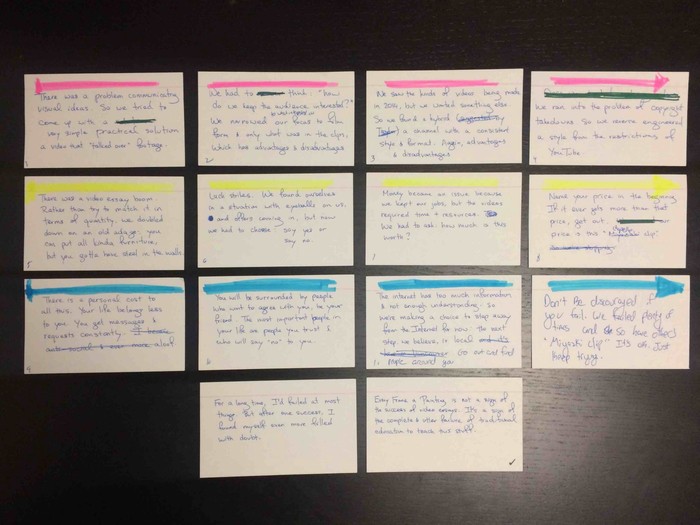 There was a problem communicating
visual ideas. So we tried to
come up with a
very simple practical solution
a video that "talked over" footage.
1
We had to think: "how
do we keep the audience interested?"
We narrowed our focus to film
form & only what was in the clips,
which has advantages & disadvantages
2
We saw the kinds of videos being made
in 2014, but we wanted something else.
So we found a hybrid
a channel with a consistent
style & format. Again, advantages
& disadvantages
3
We ran into the problem of copyright
takedowns. So we reverse engineered
a style from the restrictions of
YouTube.
4
There was a video essay boom.
Rather than try to match it in
terms of quantity, we doubled
down on an old adage: you
can put all kinds furniture,
but you gotta have steel in the walls.
5
Luck strikes. We found ourselves
in a situation with eyeballs on us.
and offers coming in, but now
we had to choose say yes or
say no.
6
Money became an issue because
we kept our jobs, but the videos
required time & resources.
We had to ask: how much is this
worth?
7
Name your price in the beginning.
If it ever gets more than that
price, get out.
price is this - "Miyoshi clip"
8
There is a personal cost to
all this. Your life belongs less
to you. You get messages &
requests constantly.
9
You will be surrounded by people
who want to agree with you, be your
friend. The most important people in
your life are people you trust &
who will say "no" to you.
The internet has too much information
& not enough understanding. So
we're making a choice to step away
from the Internet for now. The next
step we believe, is local
Go out and find
people around you
Don't be discouraged if
you fail. We failed plenty of
times and so have others
"Miyoshi clip" It's ok. Just
keep trying.
For a long time, I'd failed at most
things. But after one success, I
found myself even more filled
with doubt.
Every Frame a Painting is not a sign of
the success of video essays. It's a sign of
the complete & utter failure of traditional
education to teach this stuff.